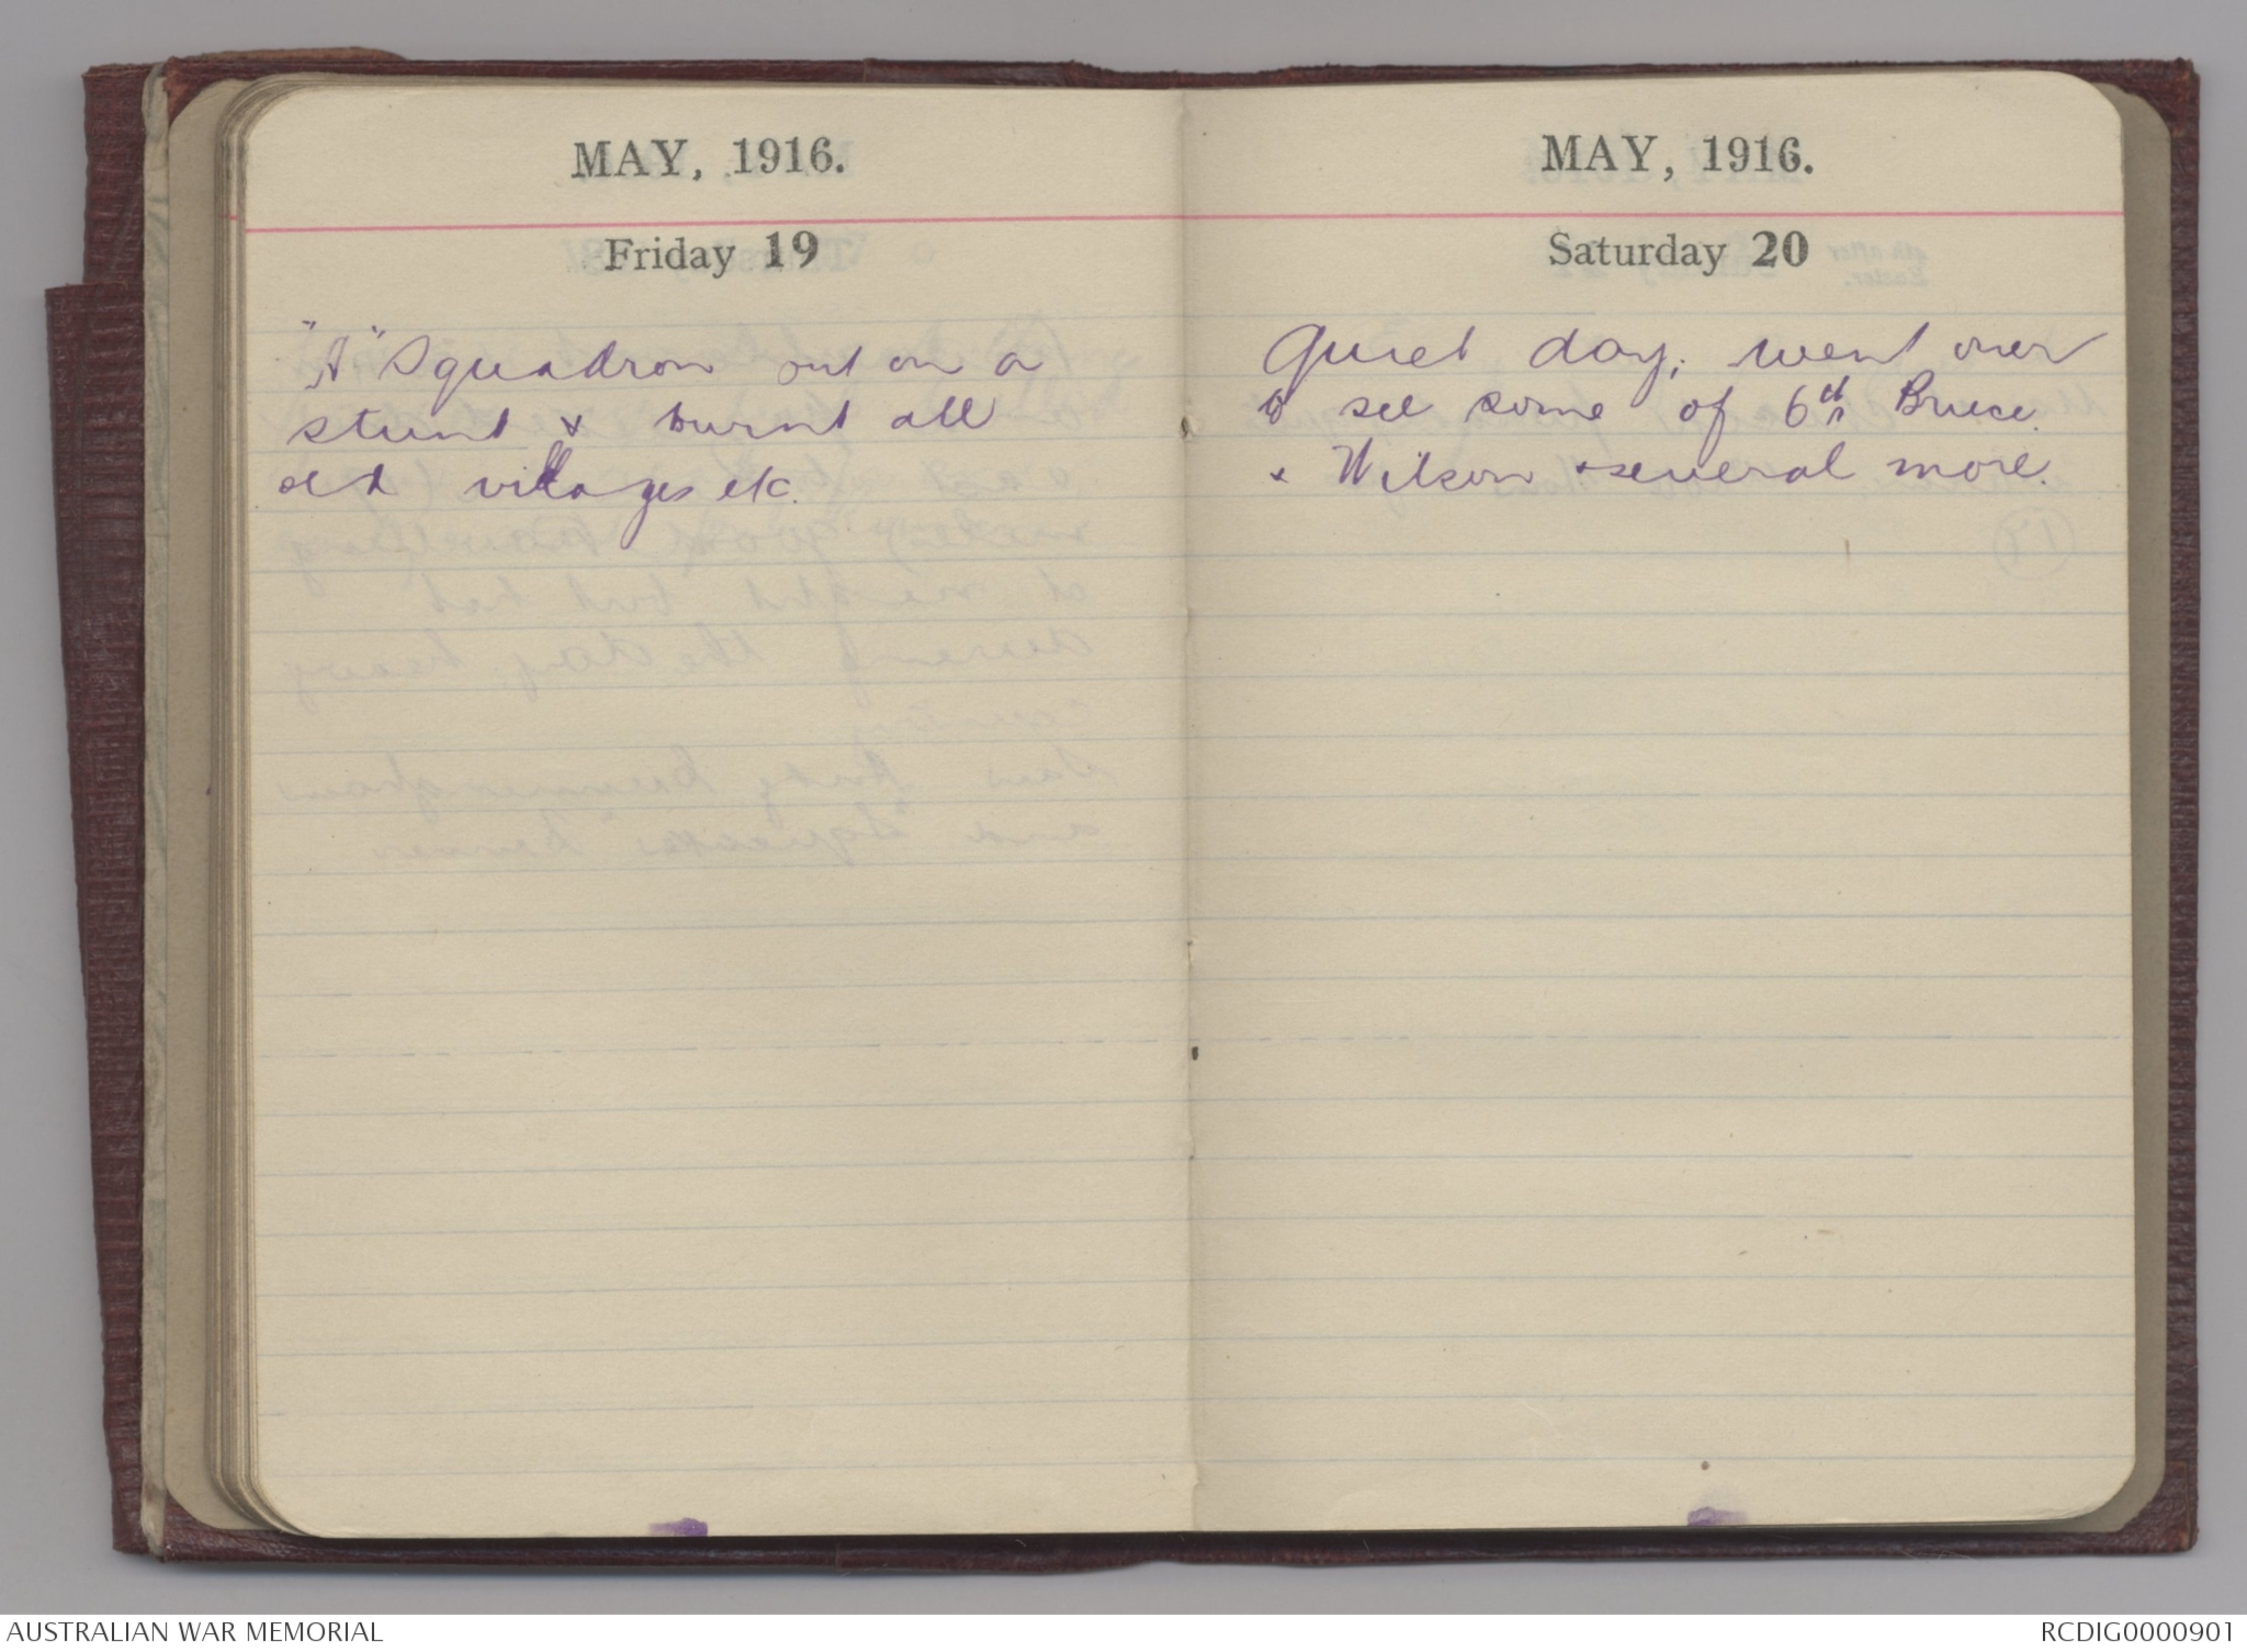 MAY, 1916.
Friday 19
"A" Squadron out on a
stunt & burnt all
old villages etc.
MAY, 1916.
Saturday 20
Quiet day; went over
to see some of 6th Bruce.
& Wilson & several more.
AUSTRALIAN WAR MEMORIAL
RCDIG0000901